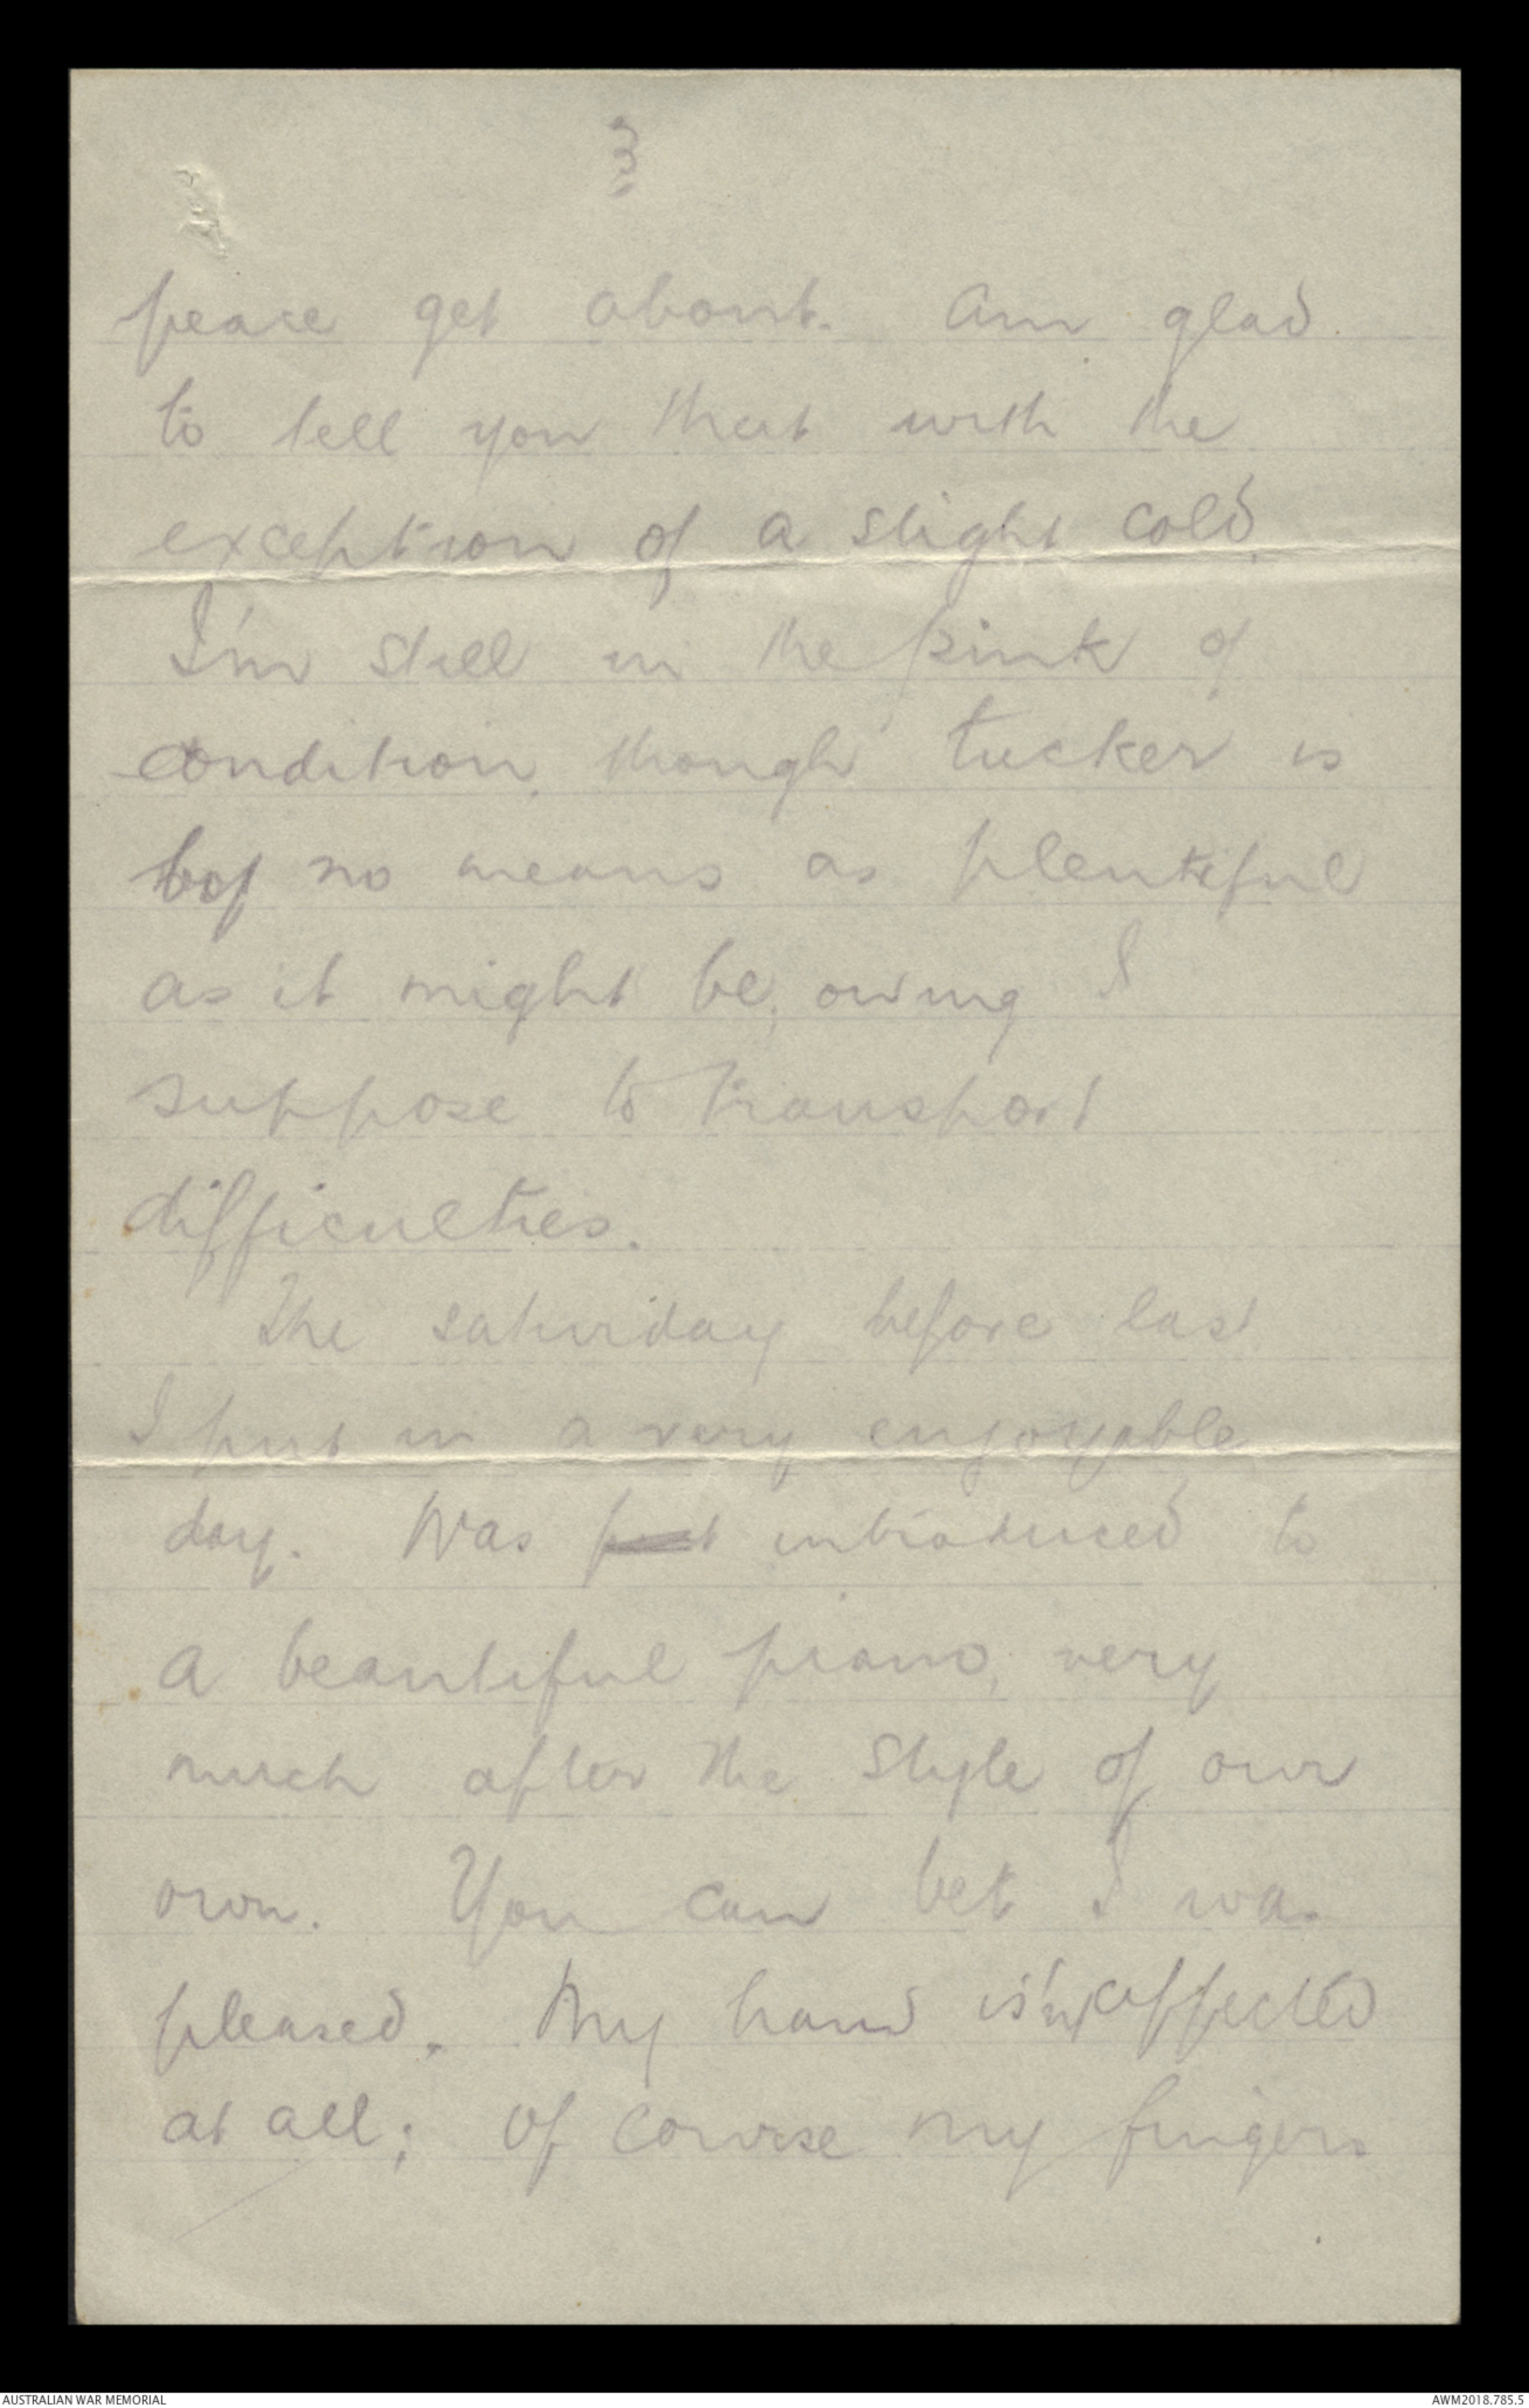 3
peace get about. Am glad
to tell you that with the
exception of a slight cold
I'm still in the pink of
condition, though tucker is
by no means as plentiful
as it might be, owing I
suppose to transport
difficulties.
The saturday before last
I put in a very enjoyable
day. Was introduced to
a beautiful piano, very
much after the style of our
own. You can bet I was
pleased. My hand isn't affected
at all; of course my fingers
AUSTRALIAN WAR MEMORIAL
AWM2018.785.5